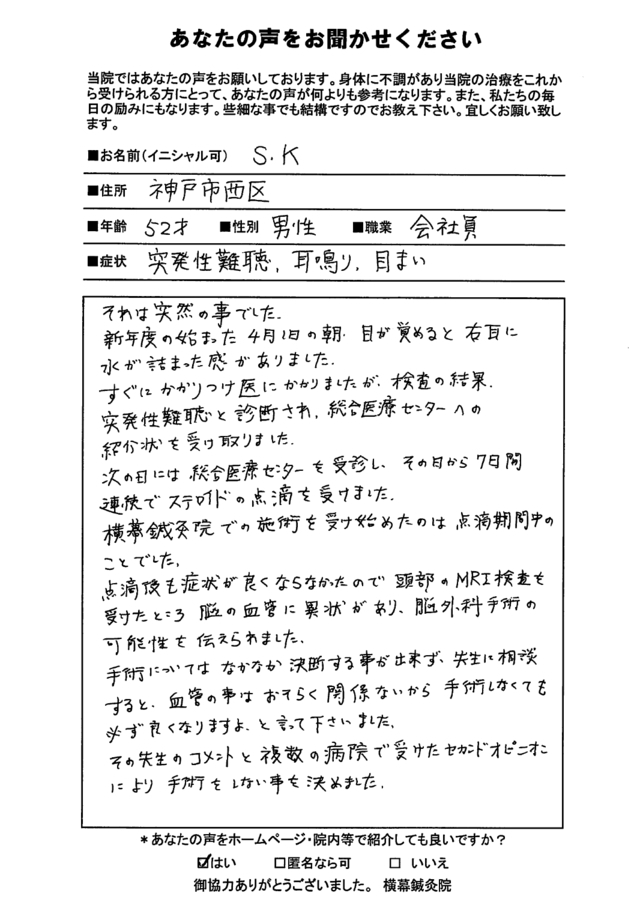 あなたの声をお聞かせください
当院ではあなたの声をお願いしております。身体に不調があり当院の治療をこれか
ら受けられる方にとって、あなたの声が何よりも参考になります。また、私たちの毎
日の励みにもなります。些細な事でも結構ですのでお教え下さい。宜しくお願い致し
ます。
■お名前(イニシャル可) S.K
■住所 神戸市西区
■年齢 52才 ■性別 男性 ■職業 会社員
■症状 突発性難聴, 耳鳴り, 目まい
それは突然の事でした.
新年度の始まった 4月1日の朝. 目が覚めると 右耳に
水が詰まった感がありました.
すぐにかかりつけ医にかかりましたが、検査の結果.
突発性難聴と診断され, 総合医療センターへの
紹介状を受け取りました.
次の日には総合医療センターを受診し、その日から7日間
連続でステロイドの点滴を受けました.
横幕鍼灸院での施術を受け始めたのは点滴期間中の
ことでした.
点滴後も症状が良くならなかったので頭部のMRI検査を
受けたところ 脳の血管に異状があり、脳外科手術の
可能性を伝えられました.
手術についてはなかなか決断する事が出来ず、先生に相談
すると、血管の事はおそらく関係ないから手術しなくても
必ず良くなりますよ、と言って下さいました.
その先生のコメントと複数の病院で受けたセカンドオピニオン
により手術をしない事を決めました.
*あなたの声をホームページ・院内等で紹介しても良いですか?
☑はい □匿名なら可 □ いいえ
御協力ありがとうございました。 横幕鍼灸院